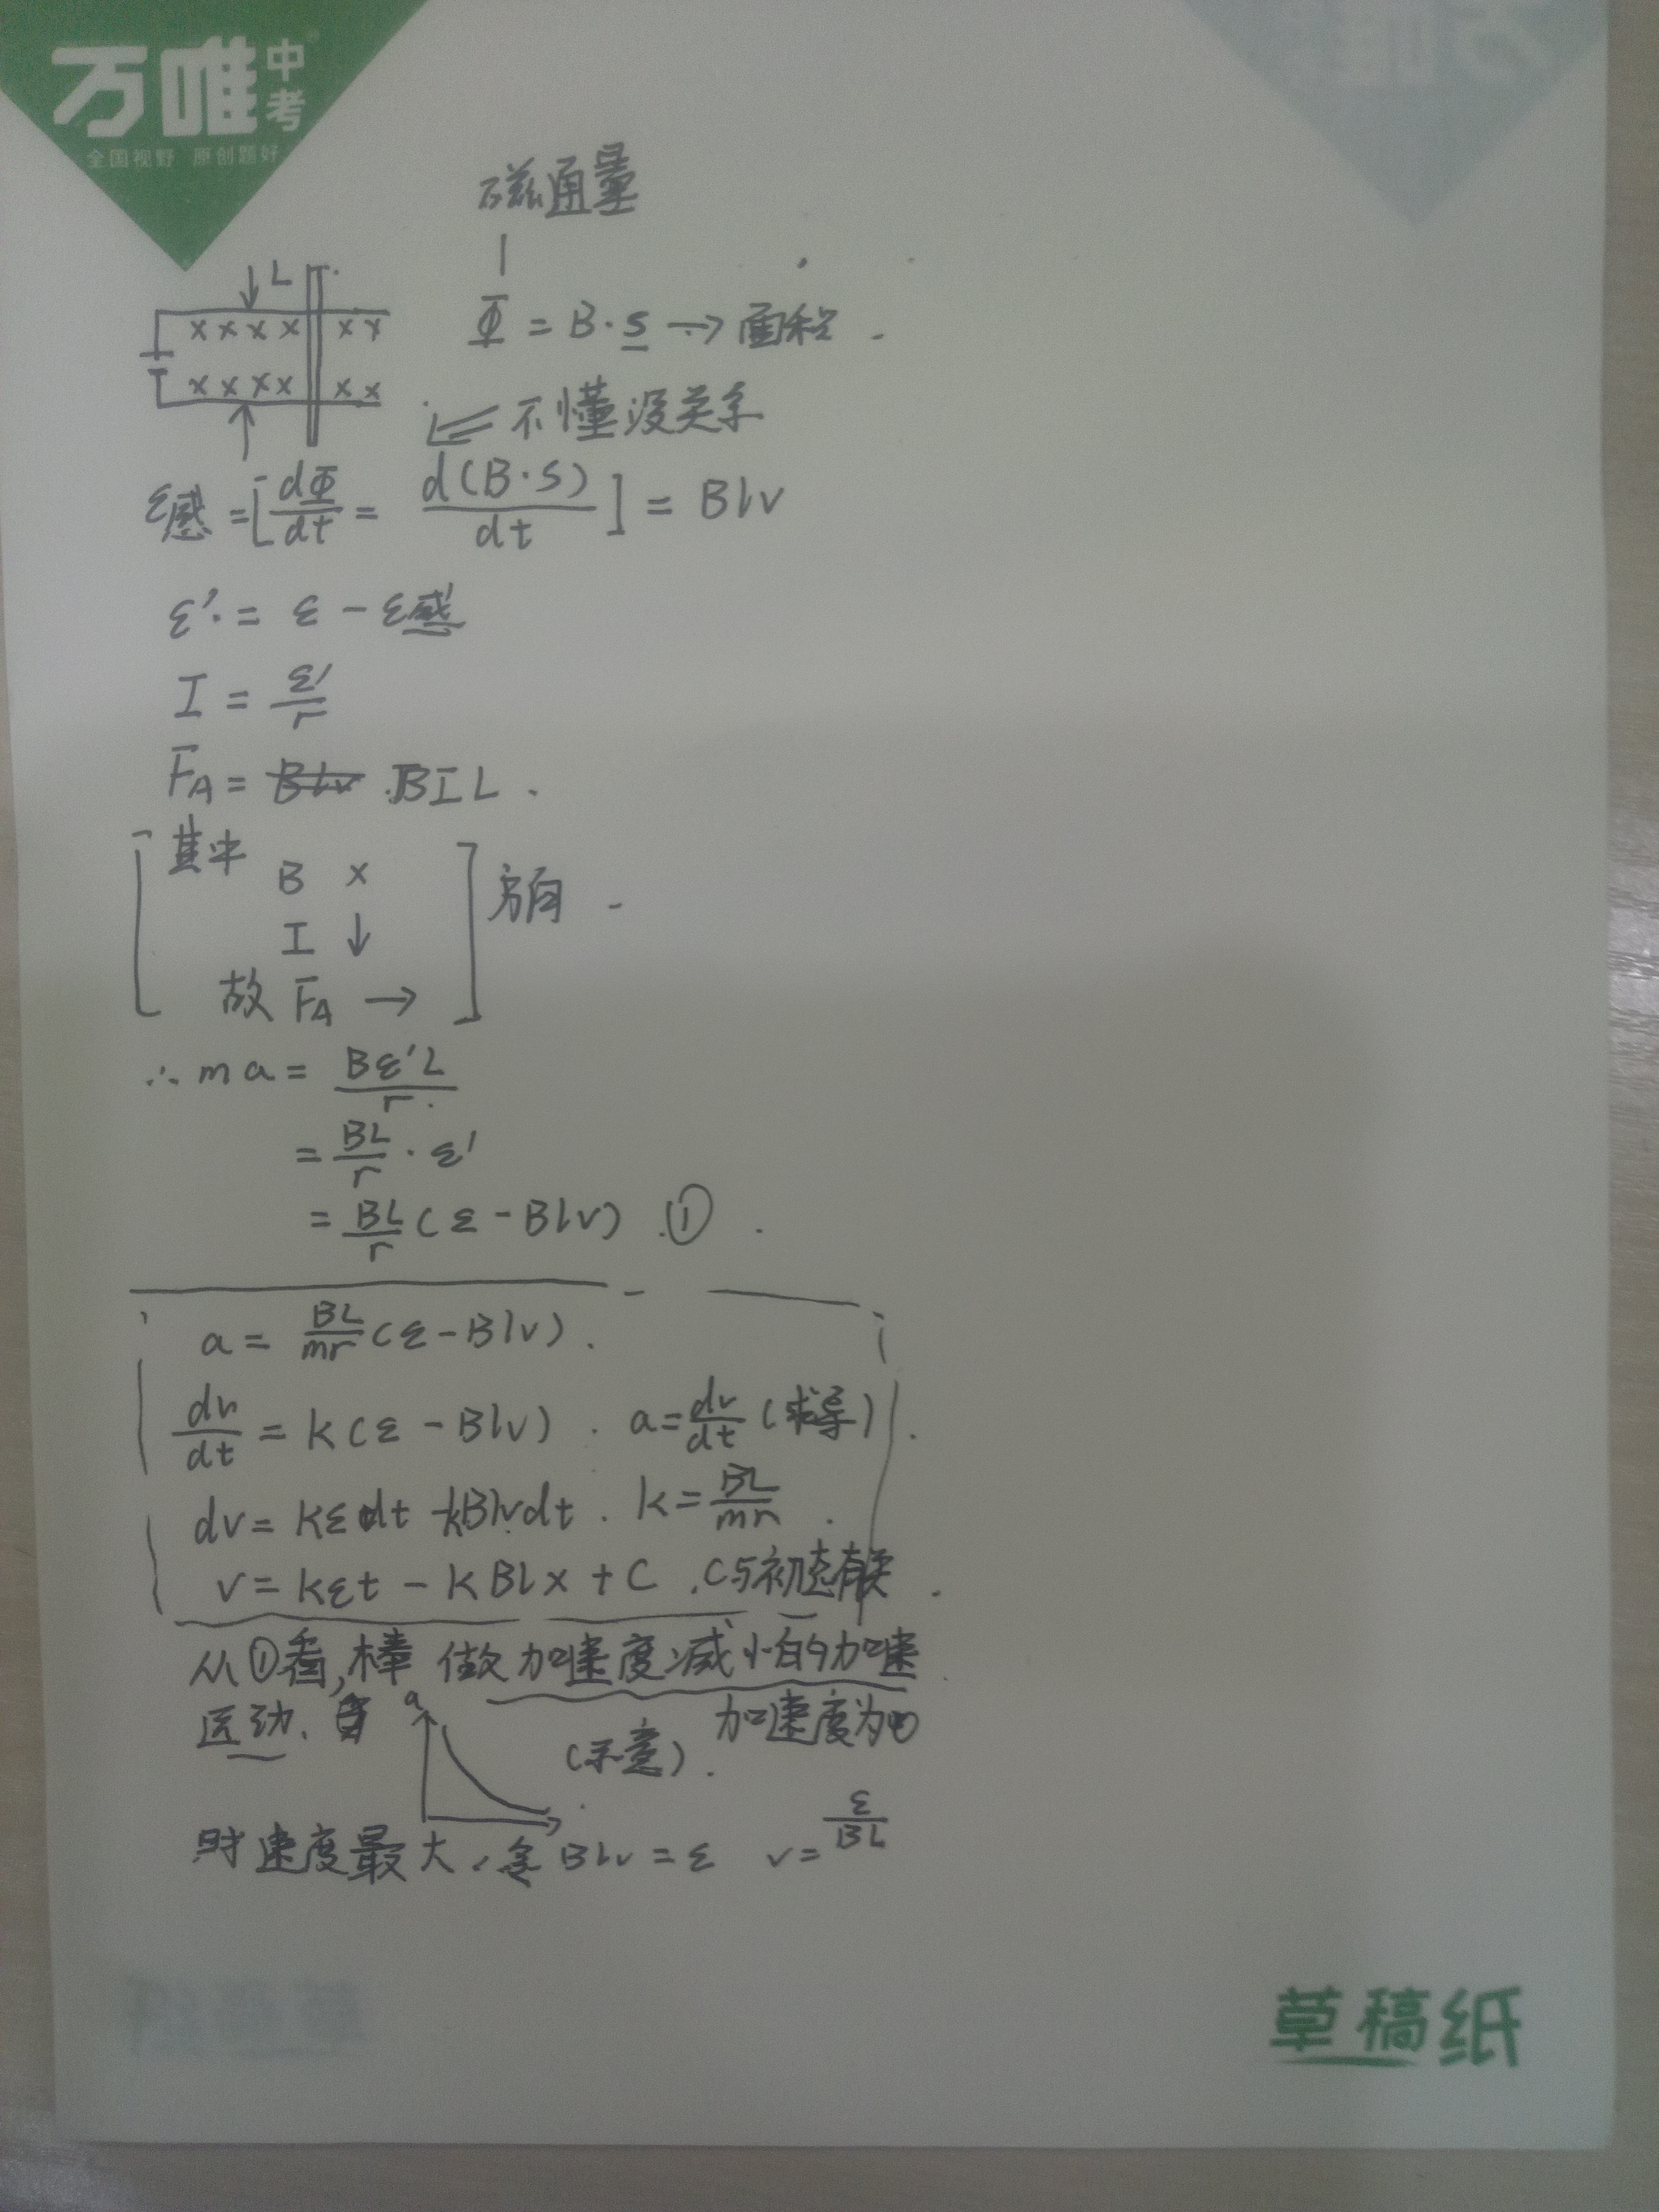 万唯中考
全国视野 原创题好
磁通量
L
Φ = B·s → 面积
× × × × × ×
× × × × × ×
不懂没关系
ε感 = [dΦ/dt = d(B·S)/dt] = Blv
ε' = ε - ε感
I = ε'/r
F_A = Blv BIL.
其中
B ×
I ↓
方向
故 F_A →
∴ ma = Bε'L/r
= BL/r · ε'
= BL/r (ε - Blv) ①
a = BL/mr (ε - Blv).
dv/dt = k(ε - Blv). a = dv/dt (求导)
dv = kεdt - kBlvdt. k = BL/mr
v = kεt - kBlx + C. C与初态有关
从①看,棒 做加速度减小的加速
运动.
a
(示意).
加速度为0
时速度最大. 令 Blv = ε v = ε/BL
草稿纸